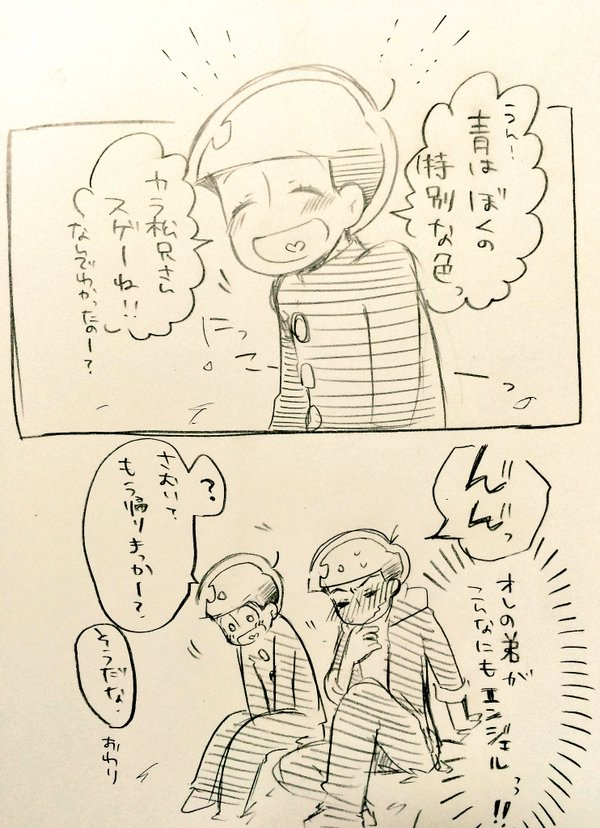 うん!
青はぼくの
特別な色っ
カラ松兄さん
スゲーね!!
なんでわかったのー?
にっ
こー
っ
ん゛
ん゛っ
オレの弟が
こんなにもエンジェルっっ!!
?
さむいて、
もう帰りまっかー?
そうだな。
おわり